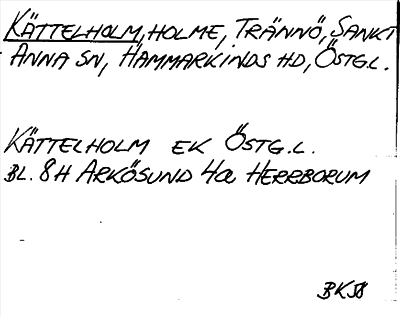 KÄTTELHOLM, HOLME, TRÄNNÖ, SANKT
ANNA SN, HAMMARKINDS HD, ÖSTG.L.
KÄTTELHOLM EK ÖSTG.L.
BL. 8H ARKÖSUND 4a HERRBORUM